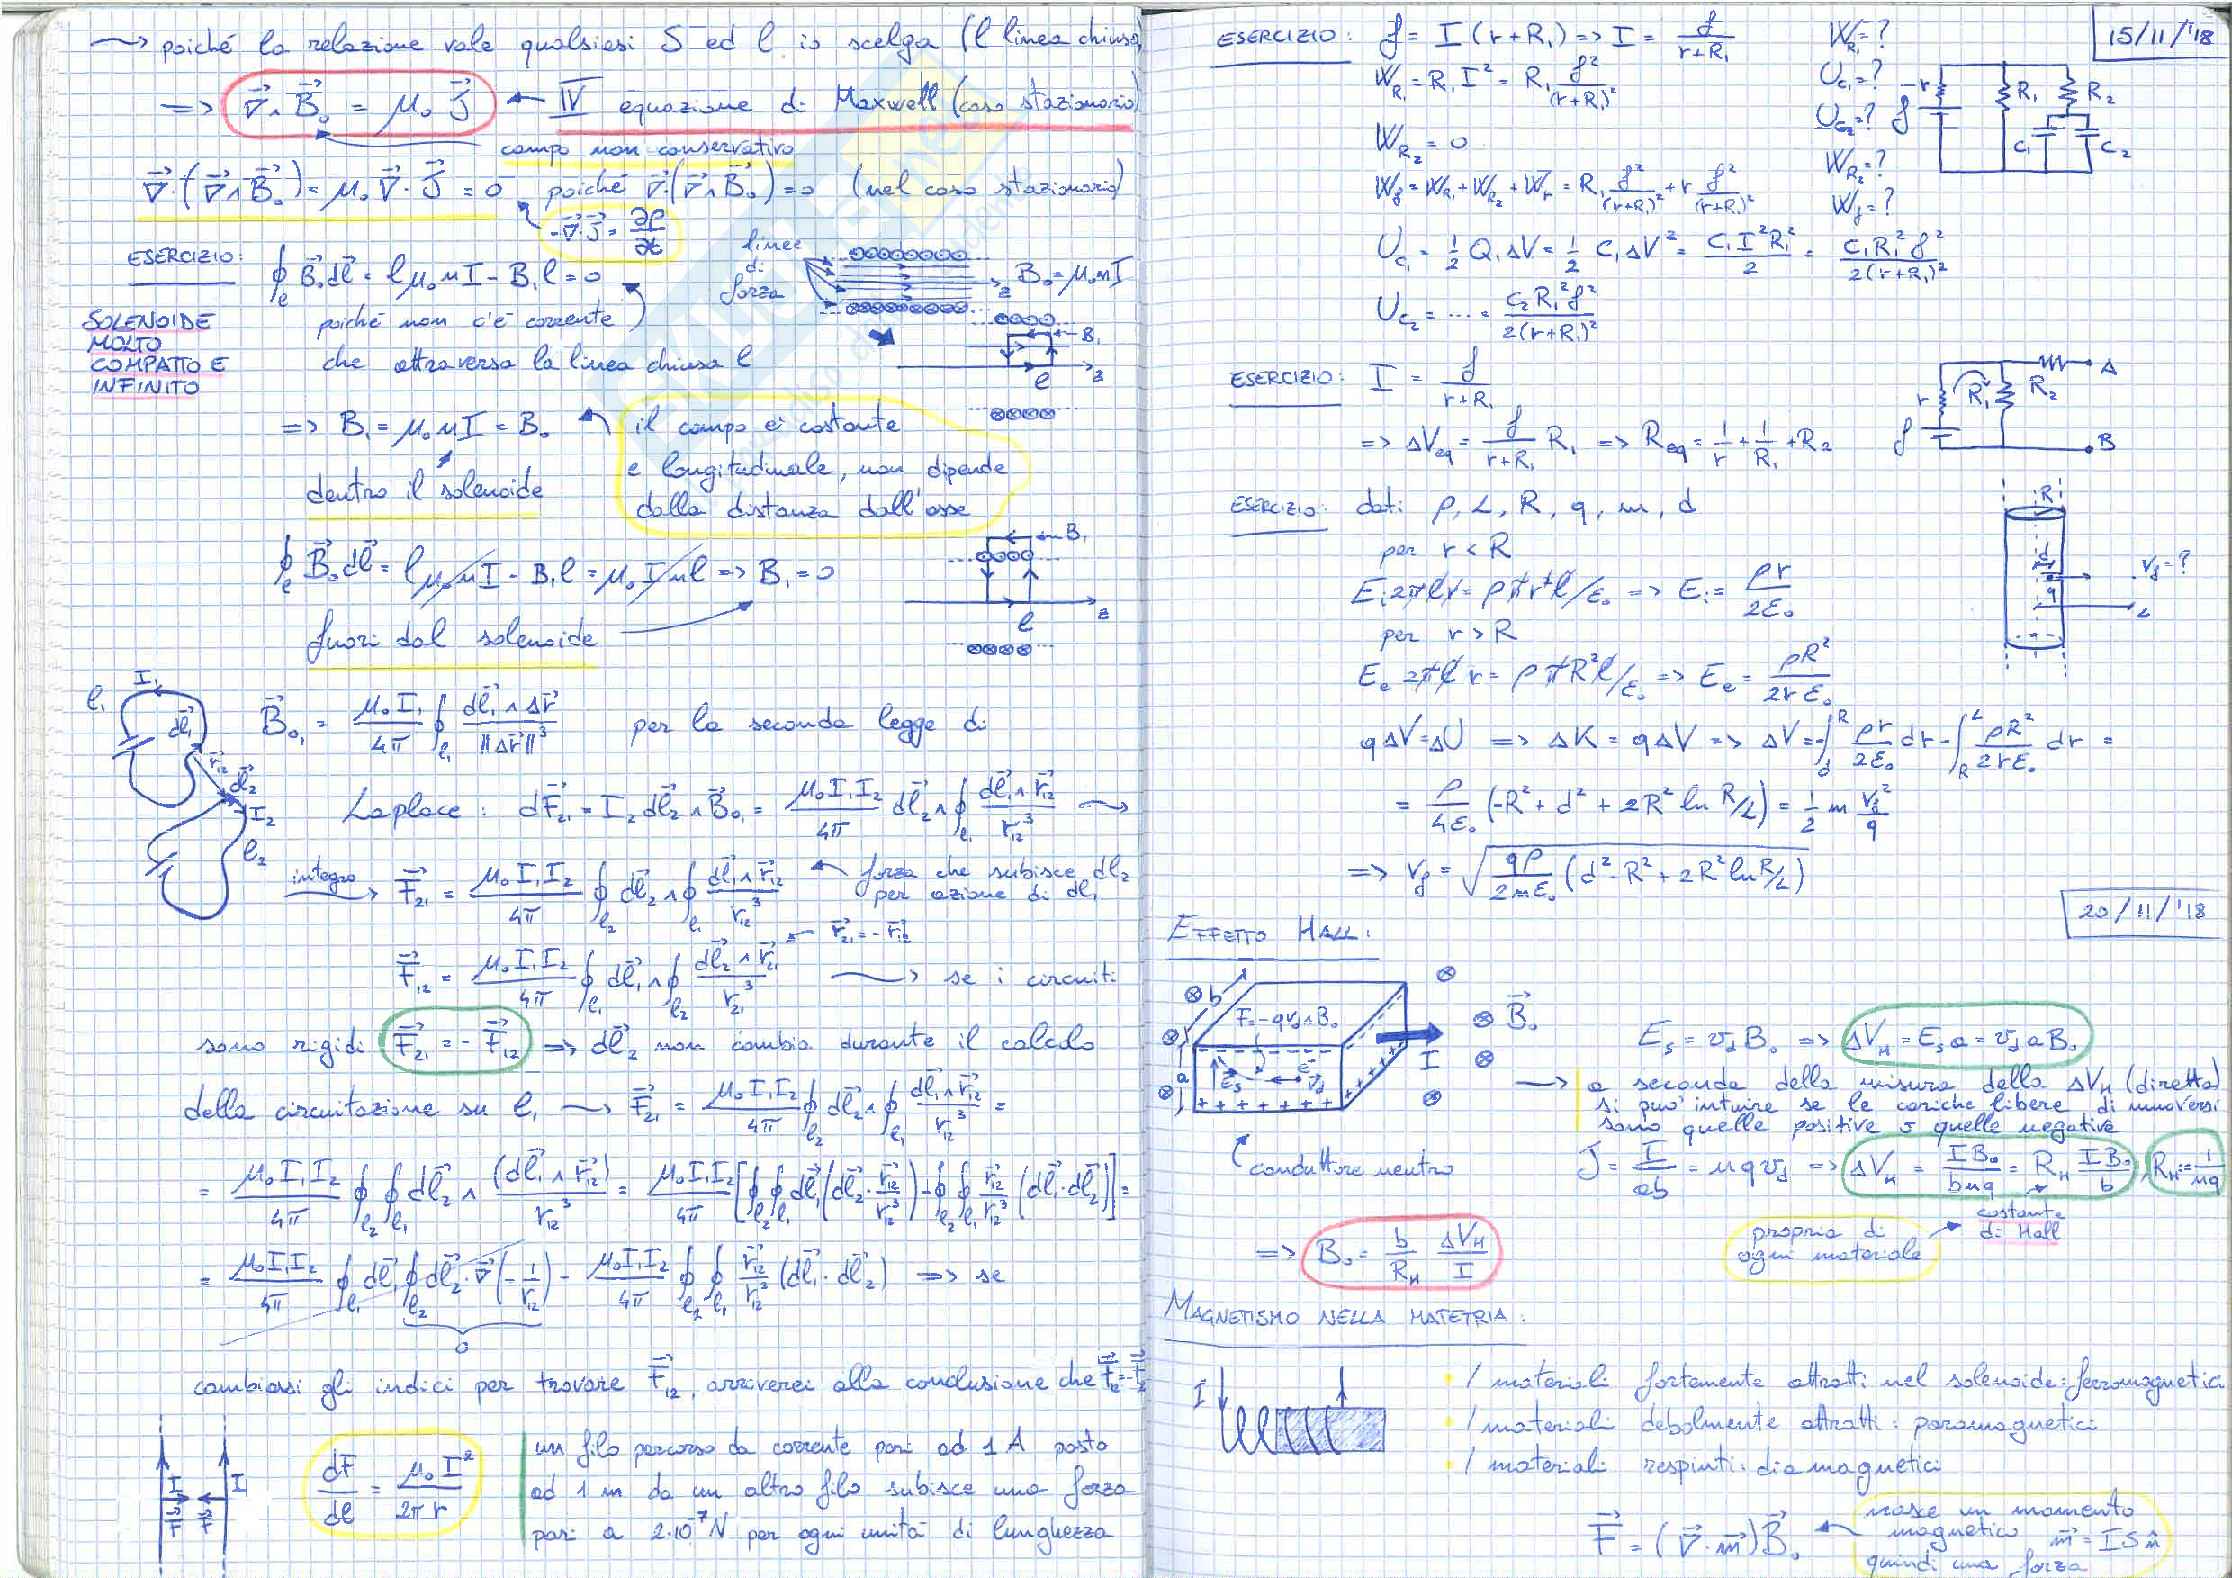 ~> poiché la relazione vale qualsiasi S ed l io scelga (l linea chiusa)
=> ∇∧B₀ = μ₀ J ← IV equazione di Maxwell (caso stazionario)
campo non conservativo
∇·(∇∧B₀) = μ₀ ∇·J = 0 poiché ∇·(∇∧B₀) = 0 (nel caso stazionario)
-∇·J = ∂ρ/∂t
ESERCIZIO: ∮ₗ B₀ dl = lμ₀nI - B₁l = 0
linee di forza
B₀ = μ₀nI
SOLENOIDE MOLTO COMPATTO E INFINITO
poiché non c'è corrente
che attraversa la linea chiusa l
B₁
l z
=> B₁ = μ₀nI = B₀
il campo è costante
e longitudinale, non dipende
dalla distanza dall'asse
dentro il solenoide
∮ₗ B₀ dl = lμ₀nI - B₁l = μ₀Inl => B₁ = 0
B₁
l z
fuori dal solenoide
l₁ I₁ dl₁ r₁₂ dl₂ I₂ l₂
B₀₁ = μ₀I₁/4π ∮ₗ₁ dl₁∧Δr/||Δr||³ per la seconda legge di
Laplace: dF₂₁ = I₂dl₂∧B₀₁ = μ₀I₁I₂/4π dl₂∧∮ₗ₁ dl₁∧r₁₂/r₁₂³ ~>
integro → F₂₁ = μ₀I₁I₂/4π ∮ₗ₂ dl₂∧∮ₗ₁ dl₁∧r₁₂/r₁₂³ ← forza che subisce dl₂
per azione di dl₁
r₂₁ = -r₁₂
F₁₂ = μ₀I₁I₂/4π ∮ₗ₁ dl₁∧∮ₗ₂ dl₂∧r₂₁/r₂₁³ ~> se i circuiti
sono rigidi F₂₁ = -F₁₂ => dl₂ non cambia durante il calcolo
della circuitazione su l₁ ~> F₂₁ = μ₀I₁I₂/4π ∮ₗ₂ dl₂∧∮ₗ₁ dl₁∧r₁₂/r₁₂³ =
= μ₀I₁I₂/4π ∮ₗ₂∮ₗ₁ dl₂∧(dl₁∧r₁₂)/r₁₂³ = μ₀I₁I₂/4π [∮ₗ₂∮ₗ₁ dl₁(dl₂·r₁₂/r₁₂³) - ∮ₗ₂∮ₗ₁ r₁₂/r₁₂³ (dl₁·dl₂)] =
= μ₀I₁I₂/4π ∮ₗ₁ dl₁∮ₗ₂ dl₂·∇(-1/r₁₂) - μ₀I₁I₂/4π ∮ₗ₂∮ₗ₁ r₁₂/r₁₂³ (dl₁·dl₂) => se
0
cambiassi gli indici per trovare F₁₂, arriverei alla conclusione che
I I F F
dF/dl = μ₀I²/2πr
un filo percorso da corrente pari ad 1 A posto
ad 1 m da un altro filo subisce una forza
pari a 2·10⁻⁷ N per ogni unità di lunghezza
15/11/'18
ESERCIZIO: f = I(r+R₁) => I = f/(r+R₁)
W_R₁ = R₁I² = R₁ f²/(r+R₁)²
W_R₂ = 0
W_f = W_R₁ + W_R₂ + W_r = R₁ f²/(r+R₁)² + r f²/(r+R₁)²
U_C₁ = 1/2 Q₁ΔV = 1/2 C₁ΔV² = C₁I²R₁²/2 = C₁R₁²f²/2(r+R₁)²
U_C₂ = .... = C₂R₁²f²/2(r+R₁)²
W_R₁ = ?
U_C₁ = ?
U_C₂ = ?
W_R₂ = ?
W_f = ?
r f R₁ R₂ C₁ C₂
ESERCIZIO: I = f/(r+R₁)
=> ΔV_eq = f/(r+R₁) R₁ => R_eq = 1/r + 1/R₁ + R₂
r R₁ R₂ f A B
ESERCIZIO: dati ρ, L, R, q, m, d
per r < R
Eᵢ2πlr = ρπr²l/ε₀ => Eᵢ = ρr/2ε₀
per r > R
Eₑ 2πl r = ρπR²l/ε₀ => Eₑ = ρR²/2rε₀
R d q v_f = ? L
qΔV = ΔU => ΔK = qΔV => ΔV = -∫_d^R ρr/2ε₀ dr - ∫_R^L ρR²/2rε₀ dr =
= ρ/4ε₀ (-R² + d² + 2R² ln R/L) = 1/2 m v_f²/q
=> v_f = √(qρ/2mε₀ (d² - R² + 2R² ln R/L))
20/11/'18
EFFETTO HALL:
b a F = -qv_d∧B₀ E_s v_d I B₀
E_s = v_d B₀ => ΔV_H = E_s a = v_d a B₀
~> a seconda della misura della ΔV_H (diretta)
si può intuire se le cariche libere di muoversi
sono quelle positive o quelle negative
conduttore neutro
J = I/ab = nqv_d => ΔV_H = IB₀/bnq = R_H IB₀/b , R_H := 1/nq
costante di Hall
propria di ogni materiale
=> B₀ = b/R_H ΔV_H/I
MAGNETISMO NELLA MATETRIA:
I
/ materiali fortemente attratti nel solenoide: ferromagnetici
/ materiali debolmente attratti: paramagnetici
/ materiali respinti: diamagnetici
F = (∇·m)B₀
nasce un momento
magnetico m = ISn̂
quindi una forza